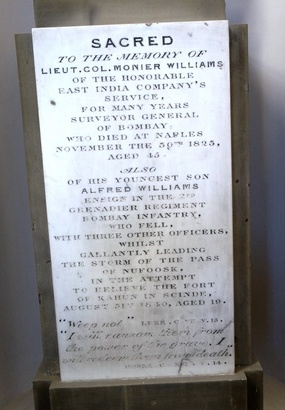 SACRED
TO THE MEMORY OF
LIEUT. COL. MONIER WILLIAMS
OF THE HONORABLE
EAST INDIA COMPANY'S
SERVICE,
FOR MANY YEARS
SURVEYOR GENERAL
OF BOMBAY;
WHO DIED AT NAPLES
NOVEMBER THE 1823,
AGED 45
ALSO
OF HIS YOUNGEST SON
ALFRED WILLIAMS
ENSIGN IN THE 2ND
GRENADIER REGIMENT
BOMBAY INFANTRY,
WHO FELL,
WITH THREE OTHER OFFICERS,
WHILST
GALLANTLY LEADING
THE STORM OF THE PASS
OF NUFOOSK,
IN THE ATTEMPT
TO RELIEVE THE FORT
OF KAHUN IN SCINDE,
AUGUST 31ST 1840, AGED 19.
"Weep not" LUKE. C. V. 13.
"I will ransom them from
the power of the grave, I
will redeem them from death."